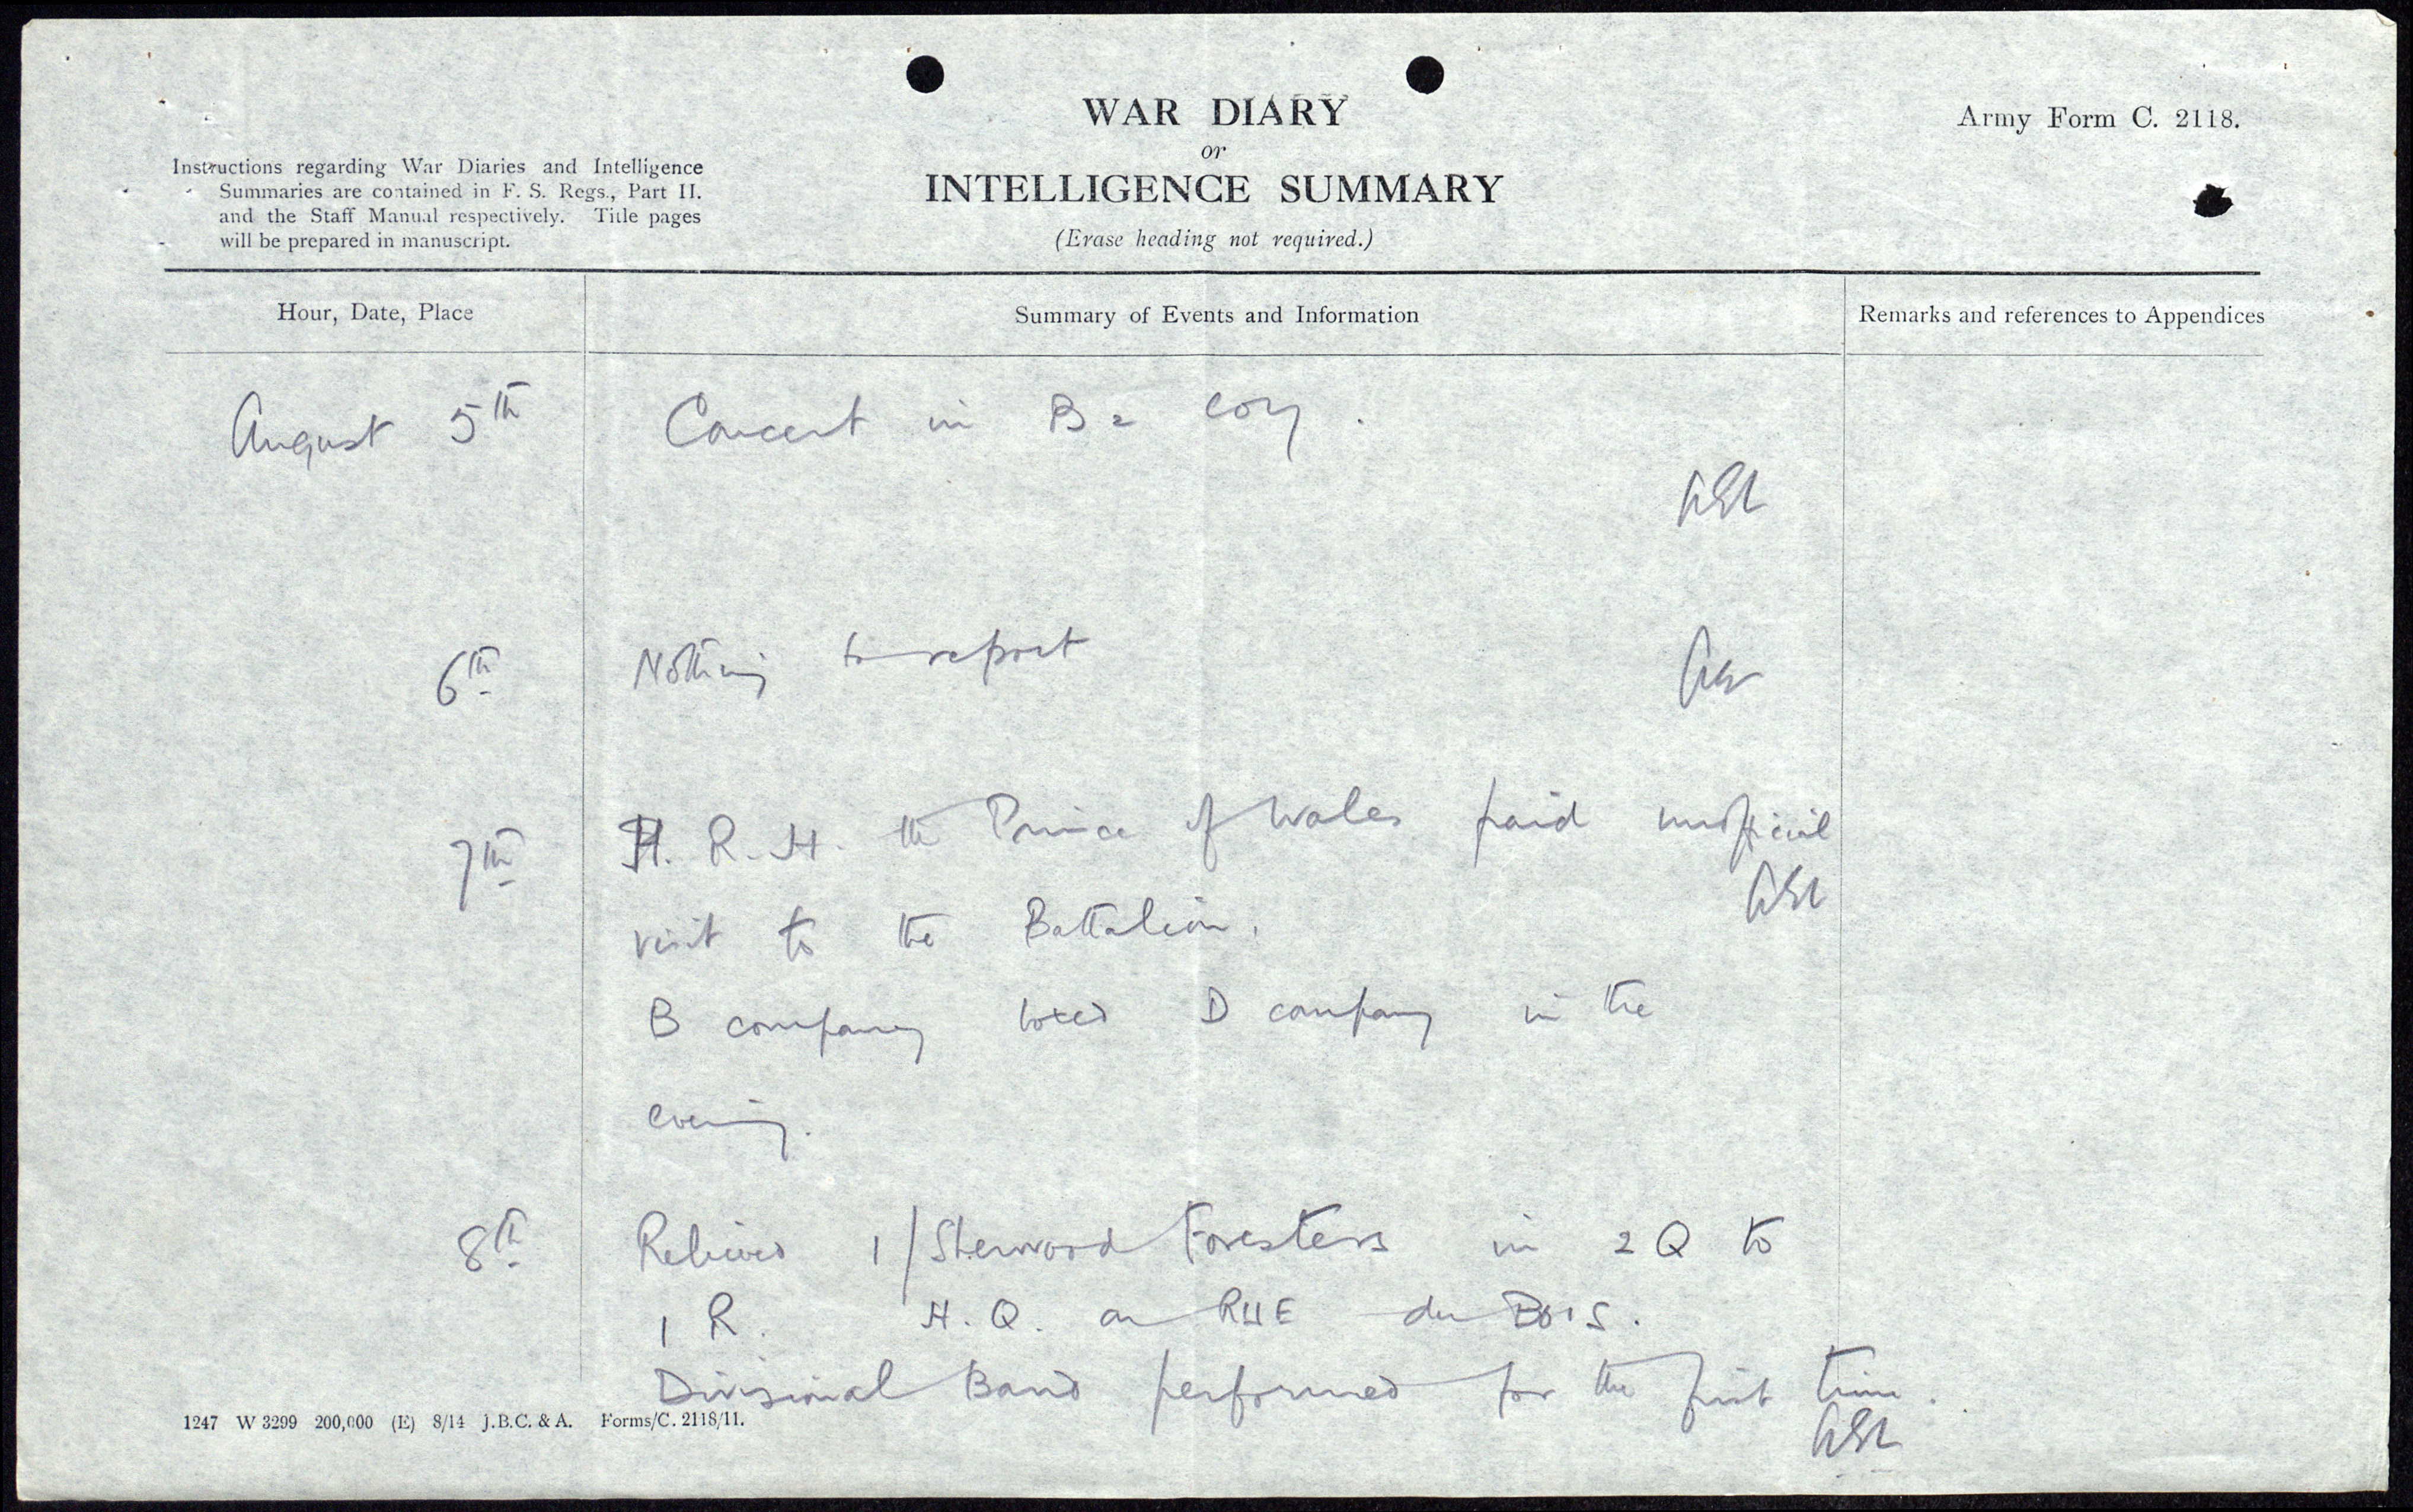 WAR DIARY
or
INTELLIGENCE SUMMARY
(Erase heading not required.)
Army Form C. 2118.
Instructions regarding War Diaries and Intelligence
Summaries are contained in F. S. Regs., Part II.
and the Staff Manual respectively. Title pages
will be prepared in manuscript.
Hour, Date, Place
Summary of Events and Information
Remarks and references to Appendices
August 5th Concert in B Coy.
6th Nothing to report
7th H. R. H. the Prince of Wales paid unofficial
visit to the Battalion.
B company boxed D company in the
evening.
8th Relieved 1/Sherwood Foresters in 2 Q to
1 R. H.Q. on RUE du BOIS.
Divisional Band performed for the first time.
1247 W 3299 200,000 (E) 8/14 J.B.C. & A. Forms/C. 2118/11.